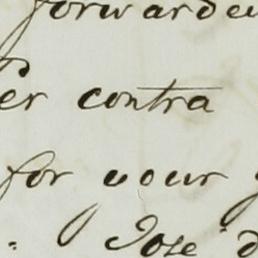 forwarded
Per contra
for your
" Jose d